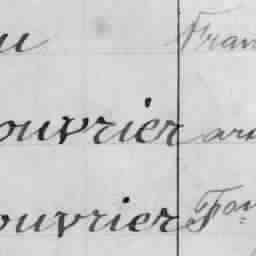 u Fran
ouvrier ard
ouvrier Fon